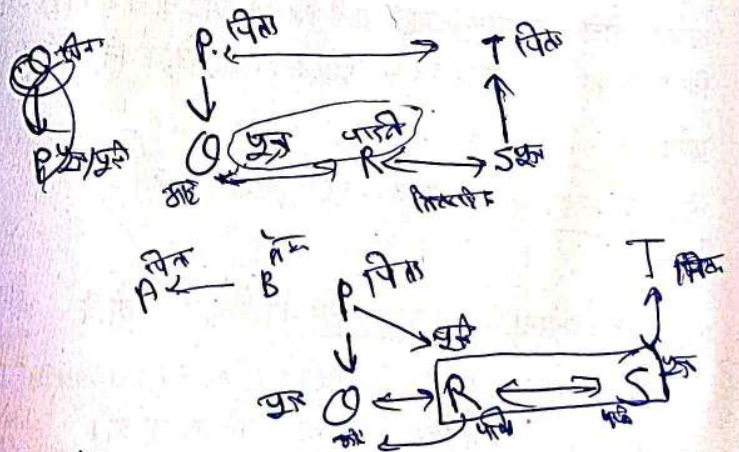 पिता P. पिता T पिता
P पुत्र/पुत्री Q पुत्र पत्नी R S पुत्र
भाई
पिता
A B P पिता T
पुत्री
पुत्र Q R S पुत्र
भाई पत्नी पति